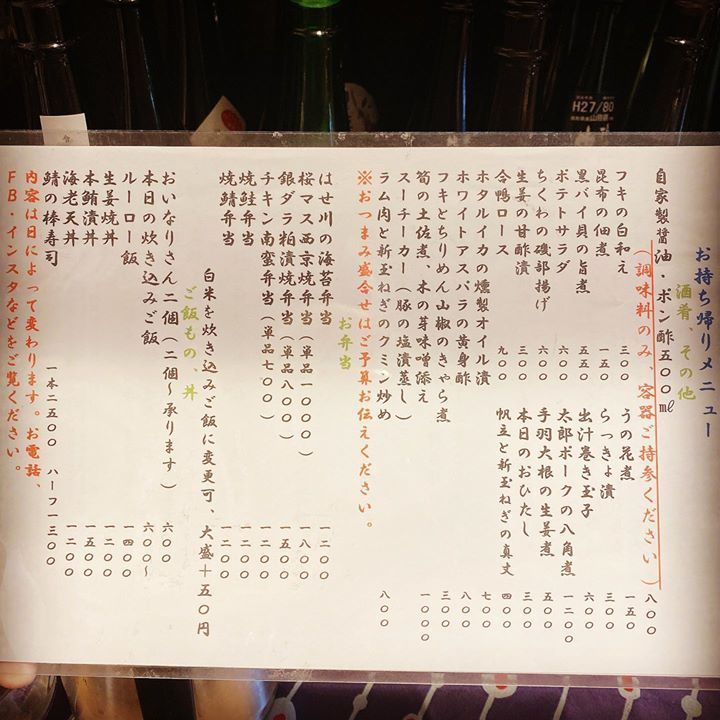 H27/80
お持ち帰りメニュー
酒肴、その他
自家製醤油・ポン酢五〇〇㎖ 八〇〇
(調味料のみ、容器ご持参ください)
フキの白和え 三〇〇 うの花煮 一五〇
昆布の佃煮 一五〇 らっきょ漬 三〇〇
黒バイ貝の旨煮 五五〇 出汁巻き玉子 六〇〇
ポテトサラダ 六〇〇 太郎ポークの八角煮 一二〇〇
ちくわの磯部揚げ 六〇〇 手羽大根の生姜煮 五〇〇
生姜の甘酢漬 三〇〇 本日のおひたし 三〇〇
合鴨ロース 九〇〇 帆立と新玉ねぎの真丈 四〇〇
ホタルイカの燻製オイル漬 七〇〇
ホワイトアスパラの黄身酢 八〇〇
フキとちりめん山椒のきゃら煮 三〇〇
筍の土佐煮、木の芽味噌添え 一〇〇〇
スーチーカー(豚の塩漬蒸し)
ラム肉と新玉ねぎのクミン炒め 八〇〇
※おつまみ盛合せはご予算お伝えください。
お弁当
はせ川の海苔弁当 一二〇〇
桜マス西京焼弁当(単品一〇〇〇) 一八〇〇
銀ダラ粕漬焼弁当(単品八〇〇) 一五〇〇
チキン南蛮弁当(単品七〇〇) 一二〇〇
焼鮭弁当 一二〇〇
焼鯖弁当 一二〇〇
白米を炊き込みご飯に変更可、大盛+五〇円
ご飯もの、丼
おいなりさん二個(二個〜承ります) 六〇〇
本日の炊き込みご飯 六〇〇〜
ルーロー飯 一四〇〇
生姜焼丼 一二〇〇
本鮪漬丼 一五〇〇
海老天丼 一二〇〇
鯖の棒寿司 一本二五〇〇 ハーフ一三〇〇
内容は日によって変わります。お電話、
FB・インスタなどをご覧ください。